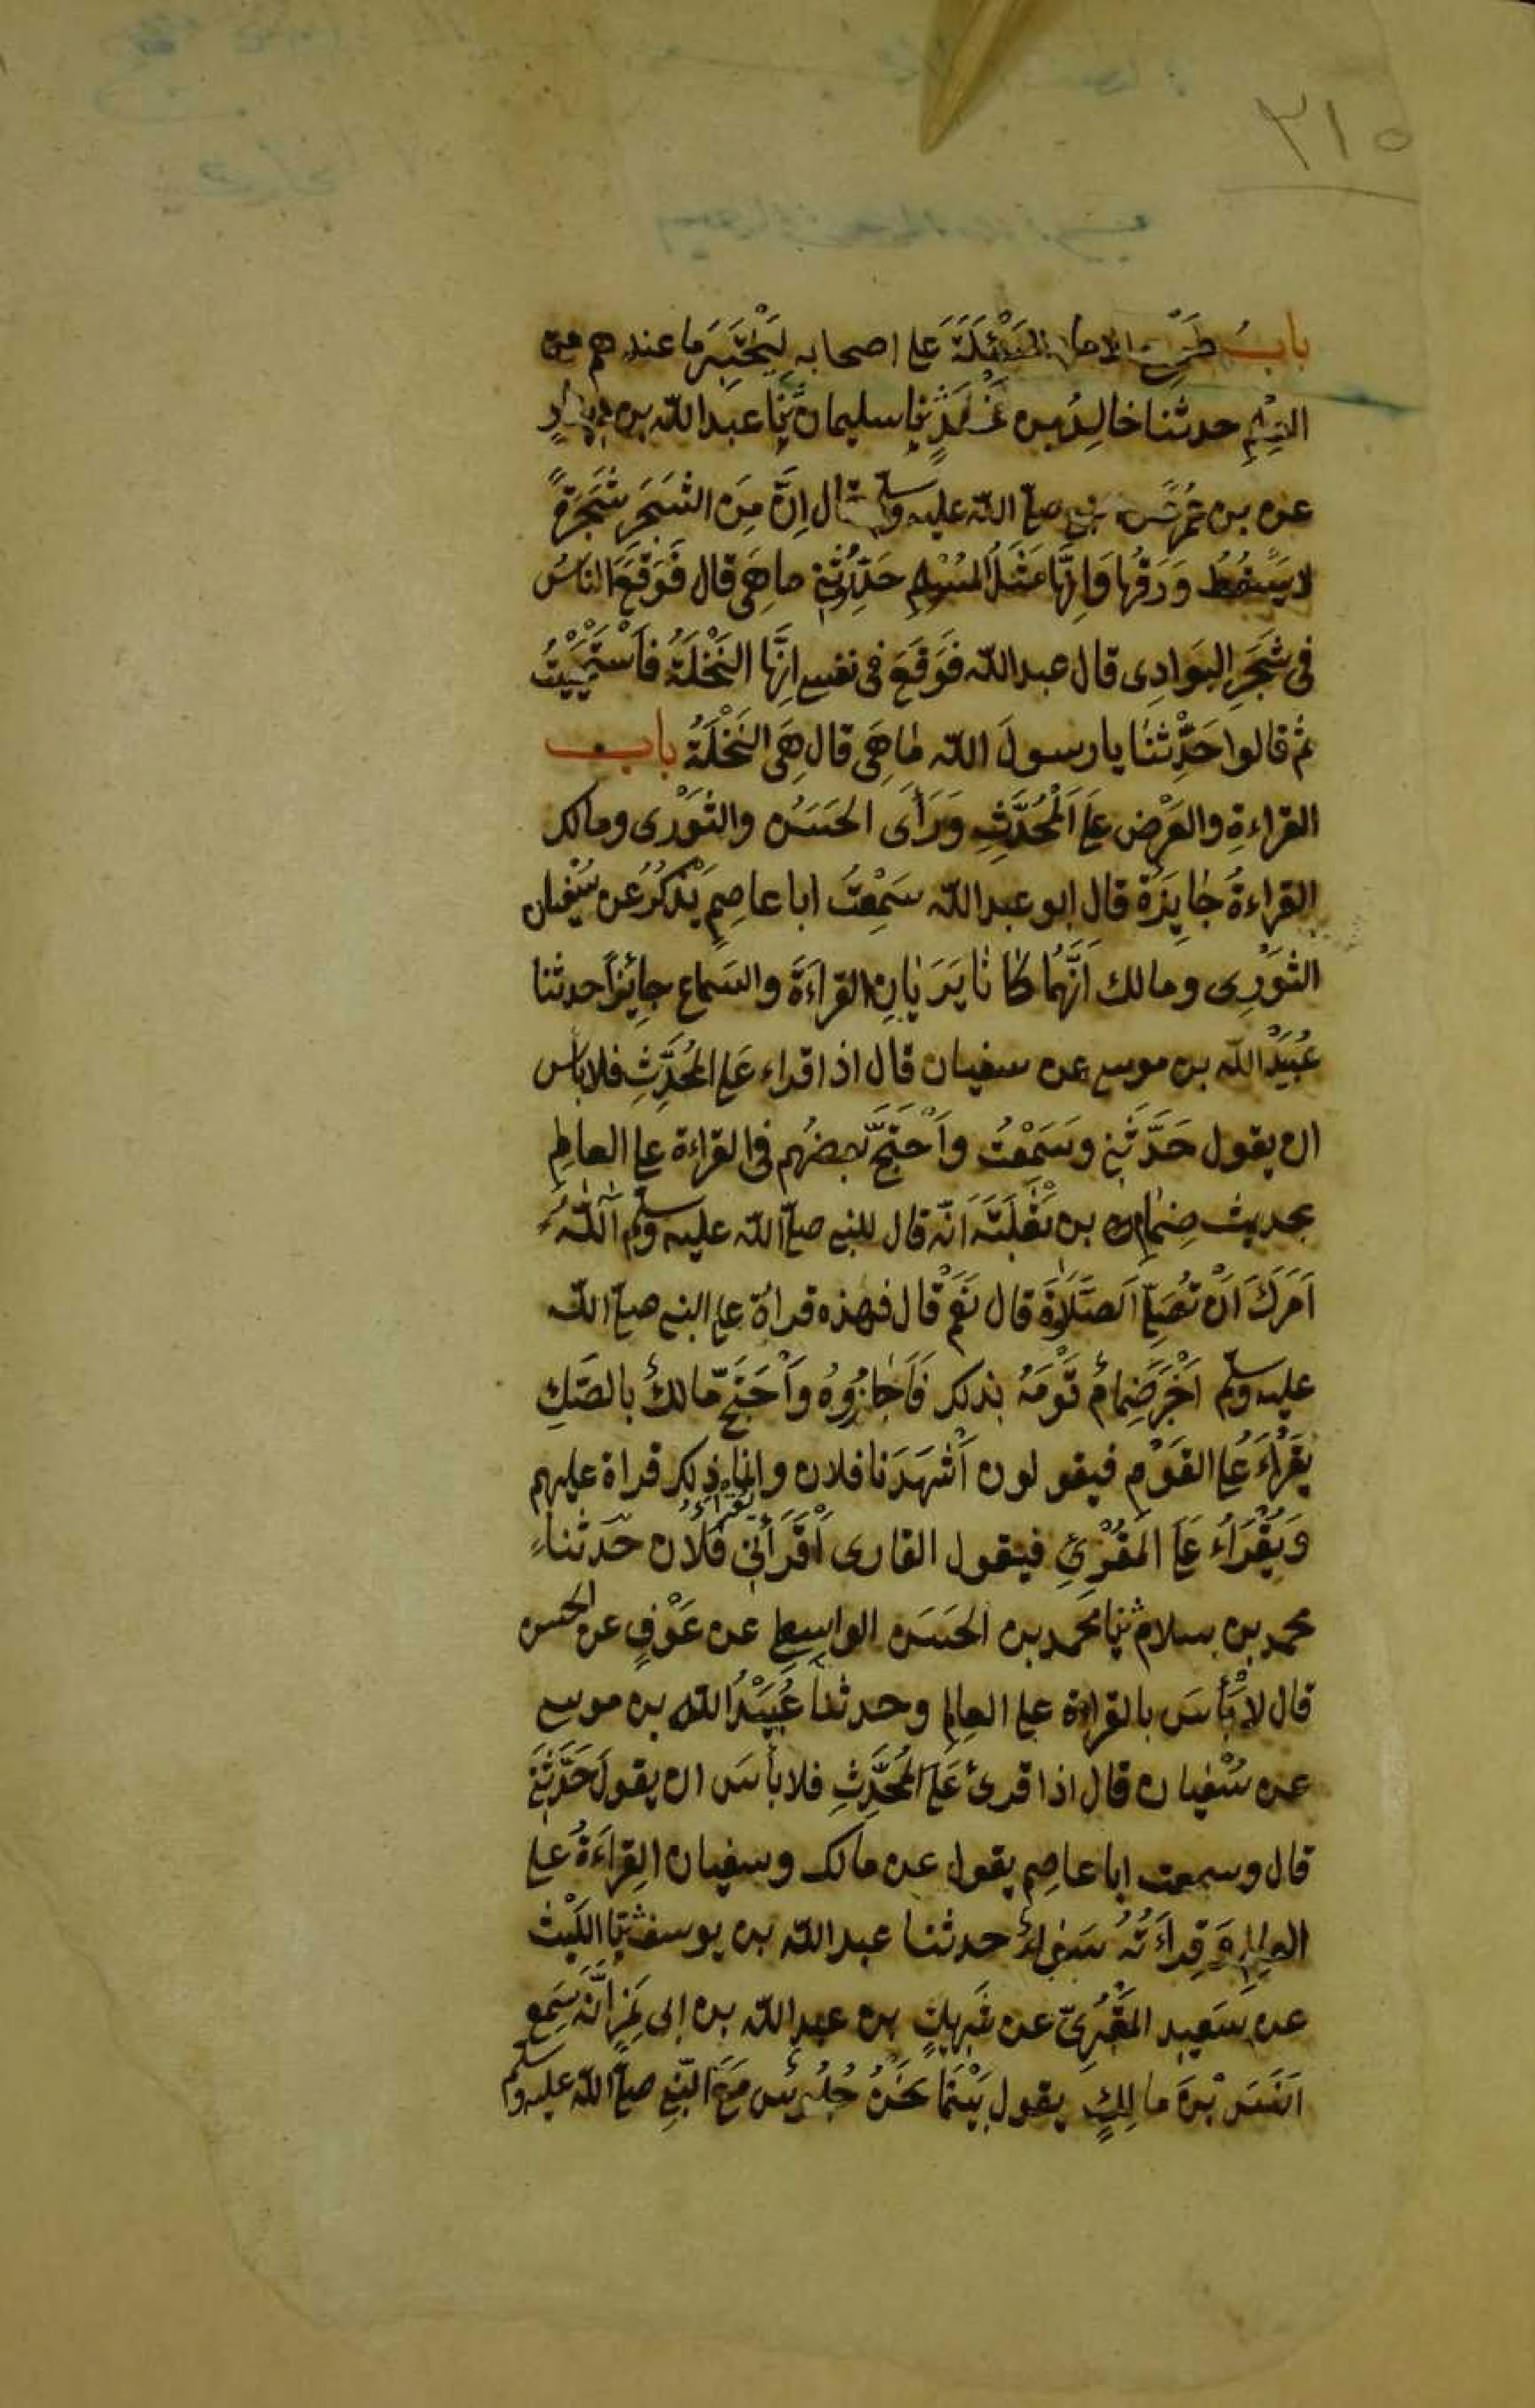 ٣١٥
بابُ طَرْحِ الامام المَسْئَلَةَ عَلى اصحابه لِيَخْتَبِرَ ما عندهم من
العِلْمِ حدثنا خالِدُ بن مَخْلَدٍ ثنا سليمان ثنا عبد الله بن دينارٍ
عن بن عُمَرَ عن النبي صلى الله عليه وسلم قال اِنَّ مِنَ الشَجَرِ شَجَرَةً
لا يَسْقُطُ وَرَقُها وَاِنَّها مَثَلُ المُسْلِمِ حَدِّثُونِي ما هِيَ قال فَوَقَعَ الناسُ
في شَجَرِ البَوَادِى قال عبد الله فَوَقَعَ في نفسي اِنَّها النَخْلَةُ فَاسْتَحْيَيْتُ
ثم قالوا حَدِّثْنَا يا رسولَ الله ما هِيَ قال هِيَ النَخْلَةُ باب
القراءةِ والعَرْضِ عَلَى المُحَدِّثِ وَرَأى الحَسَنُ والثَوْرى ومالك
القراءةَ جايِزَةً قال ابو عبد الله سَمِعْتُ ابا عاصِمٍ يَذْكُرُ عن سُفيان
الثَوْرِى ومالك اَنَّهُما كانا يَرَيانِ القراءَةَ والسَماع جائِزاً حدثنا
عُبَيْدُ الله بن موسى عن سفيان قال اذا قراء عَلَى المُحَدِّثِ فلا باس
ان يقول حَدَّثَنِي وسَمِعْتُ واَحْتَجَّ بعضُهم في القراءة على العالِمِ
بحديث ضِمَامِ بن ثَعْلَبَةَ اَنّه قال للنبي صلى الله عليه وسلم آللّٰهُ
اَمَرَكَ اَنْ تُصَلِّيَ الصَّلَاةَ قال نَعَمْ قال فهذه قراةٌ على النبي صلى الله
عليه وسلم اَخْبَرَ ضِمامٌ قَوْمَهُ بذلك فَاَجازُوهُ واَحْتَجَّ مالكٌ بالصَكِ
يُقْرَاءُ عَلَى القَوْمِ فيقولون اَشْهَدَنا فلان وانما ذلك قراة عليهم
وَيُقْرَاءُ عَلَى المُقْرِئِ فيقول القارى اَقْرَأَنِي فلان حدثنا
محمد بن سلام ثنا محمد بن الحَسَن الواسِطي عن عَوْفٍ عن الحسن
قال لا بَأْسَ بالقراءة على العالِم وحدثنا عُبَيْدُ الله بن موسى
عن سُفيان قال اذا قرئ عَلَى المُحَدِّثِ فلا بأسَ ان يقولَ حَدَّثَنِي
قال وسمعت ابا عاصِم يقول عن مالك وسفيان القِراءَةُ على
العالِمِ وَقِراءَتُهُ سَواءٌ حدثنا عبد الله بن يوسف ثنا اللَيْث
عن سَعِيدٍ المَقْبُرِىّ عن شَرِيكٍ بن عبد الله بن ابى نَمِرٍ اَنَّهُ سَمِعَ
اَنَسَ بْنَ مالِكٍ يقول بَيْنَما نَحْنُ جُلُوسٌ مَعَ النَّبِي صلى الله عليه وسلم